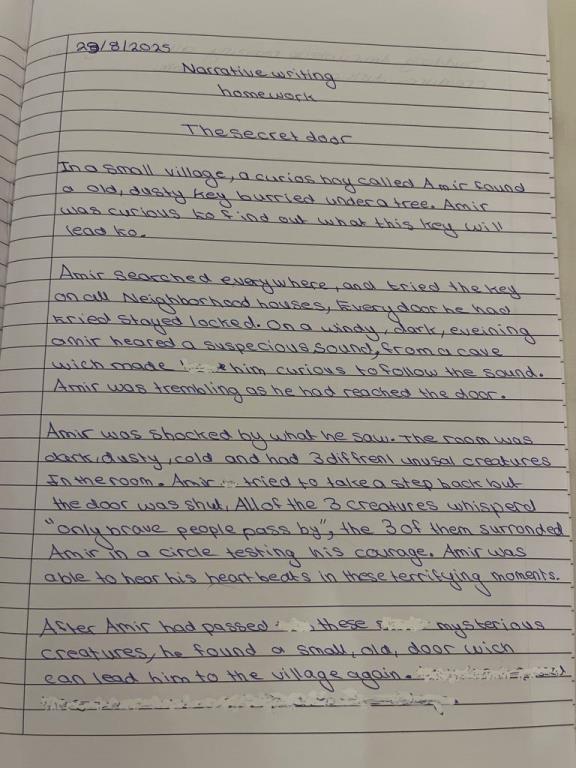 29/8/2025
Narrative writing
homework
The secret door
In a small village, a curios boy called Amir found
a old, dusty key burried under a tree. Amir
was curious to find out what this key will
lead to.
Amir searched everywhere, and tried the key
on all Neighborhood houses, Every door he had
tried stayed locked. On a windy, dark, eveining
amir heared a suspecious sound, from a cave
wich made him curious to follow the sound.
Amir was trembling as he had reached the door.
Amir was shocked by what he saw. The room was
dark, dusty, cold and had 3 diffrent unusal creatures
In the room. Amir tried to take a step back but
the door was shut, All of the 3 creatures whisperd
"only brave people pass by", the 3 of them surronded
Amir in a circle testing his courage. Amir was
able to hear his heart beats in these terrifying moments.
After Amir had passed , these mysterious
creatures, he found a small, old, door wich
can lead him to the village again.